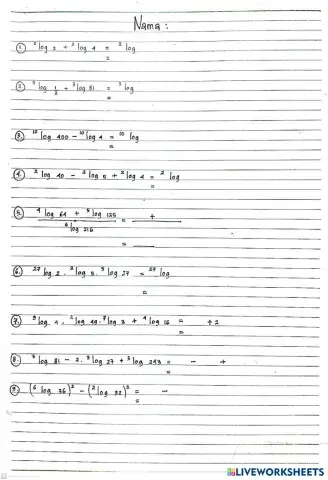 Nama :
1. ²log 2 + ²log 4 = ²log
=
2. ³log 1/3 + ³log 81 = ³log
=
3. ¹⁰log 400 - ¹⁰log 4 = ¹⁰log
=
4. ²log 40 - ²log 5 + ²log 4 = ²log
=
5. ⁴log 64 + ⁵log 125 = +
⁶log 216
=
6. ²⁷log 2 . ²log 5 . ⁵log 27 = ²⁷log
=
7. ³log 4 . ²log 49 . ⁷log 3 + ⁴log 16 = + 2
=
8. ³log 81 - 2 . ³log 27 + ³log 243 = - +
=
9. (⁶log 36)² - (²log 32)² = -
=
LIVEWORKSHEETS